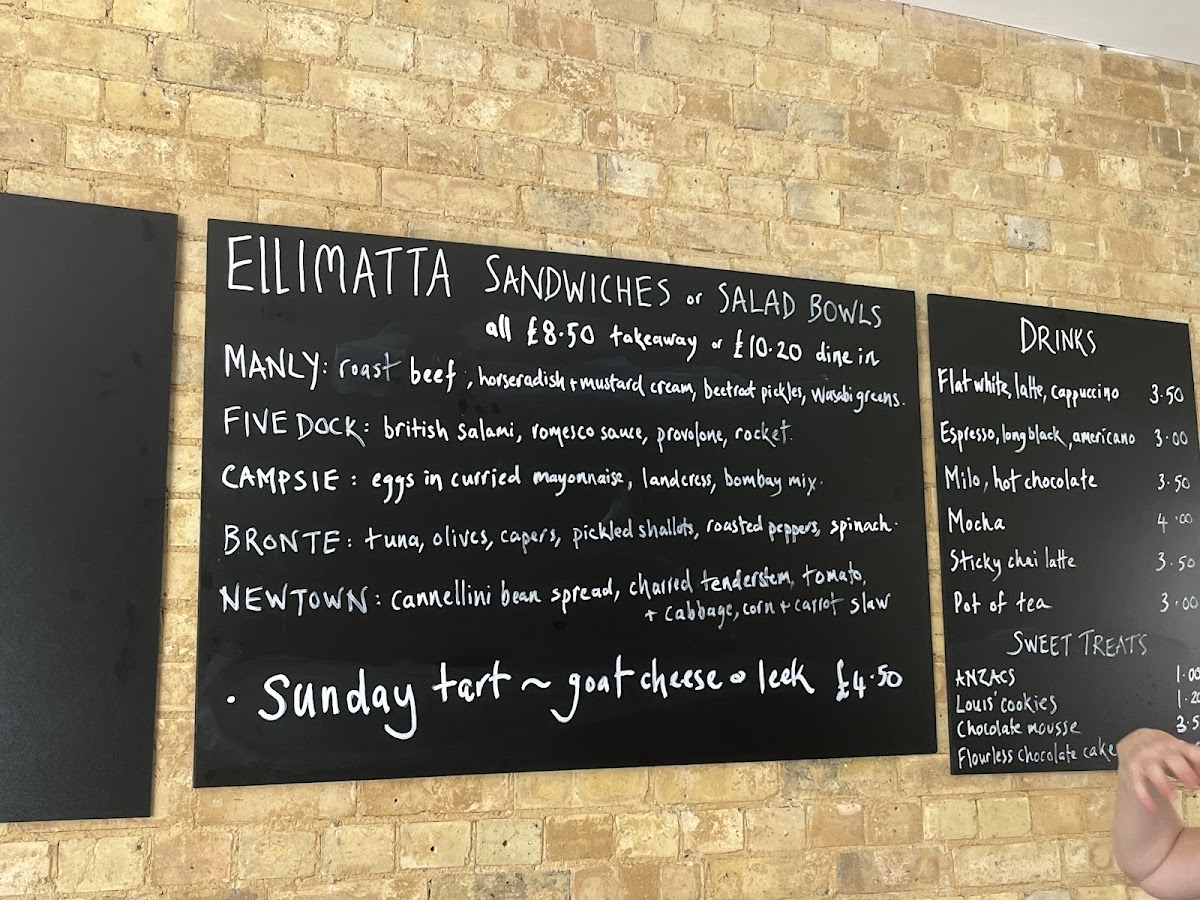 ELLIMATTA SANDWICHES or SALAD BOWLS
all £8.50 takeaway or £10.20 dine in
MANLY: roast beef, horseradish + mustard cream, beetroot pickles, wasabi greens.
FIVE DOCK: british salami, romesco sauce, provolone, rocket.
CAMPSIE: eggs in curried mayonnaise, landcress, bombay mix.
BRONTE: tuna, olives, capers, pickled shallots, roasted peppers, spinach.
NEWTOWN: cannellini bean spread, charred tenderstem, tomato,
+ cabbage, corn + carrot slaw
· Sunday tart ~ goat cheese & leek £4.50
DRINKS
Flat white, latte, cappuccino 3.50
Espresso, long black, americano 3.00
Milo, hot chocolate 3.50
Mocha 4.00
Sticky chai latte 3.50
Pot of tea 3.00
SWEET TREATS
ANZACS 1.00
Louis' cookies 1.20
Chocolate mousse 3.5
Flourless chocolate cake